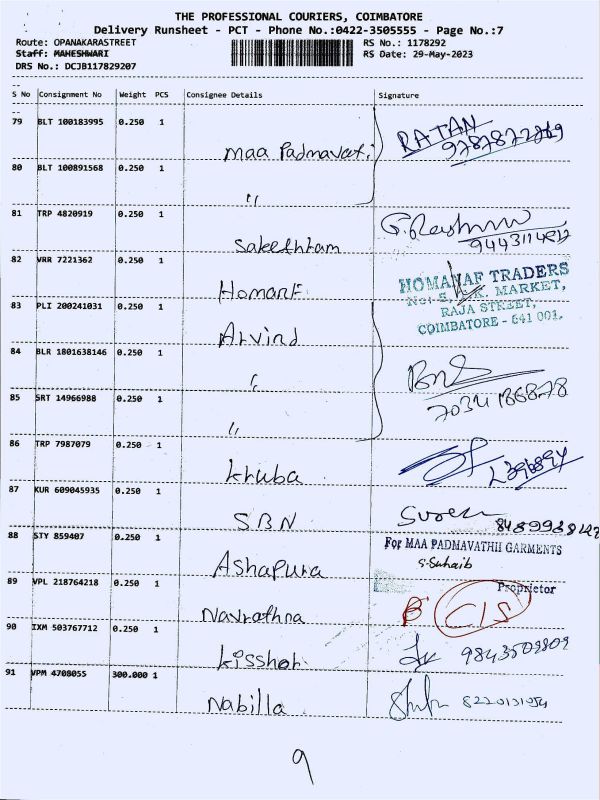 THE PROFESSIONAL COURIERS, COIMBATORE
Delivery Runsheet - PCT - Phone No.:0422-3505555 - Page No.:7
Route: OPANAKARASTREET RS No.: 1178292
Staff: MAHESHWARI RS Date: 29-May-2023
DRS No.: DCJB117829207
S No Consignment No Weight PCS Consignee Details Signature
79 BLT 100183995 0.250 1
Maa Padmavati RATAN
80 BLT 100891568 0.250 1
〃
81 TRP 4820919 0.250 1
Sakethram
82 VRR 7221362 0.250 1
HOMANAF TRADERS
No: 5, MARKET,
RAJA STREET,
COIMBATORE - 641 001.
83 PLI 200241031 0.250 1
Arvind
84 BLR 1801638146 0.250 1
〃
85 SRT 14966988 0.250 1
〃
86 TRP 7987079 0.250 1
khuba
87 KUR 609045935 0.250 1
SBN Suresh
88 STY 859407 0.250 1
Ashapura
For MAA PADMAVATHII GARMENTS
S. Suhaib
Proprietor
89 VPL 218764218 0.250 1
Navrathna
90 IXM 503767712 0.250 1
9843509809
91 VPM 4708055 300.000 1
Nabilla 8220131954
9